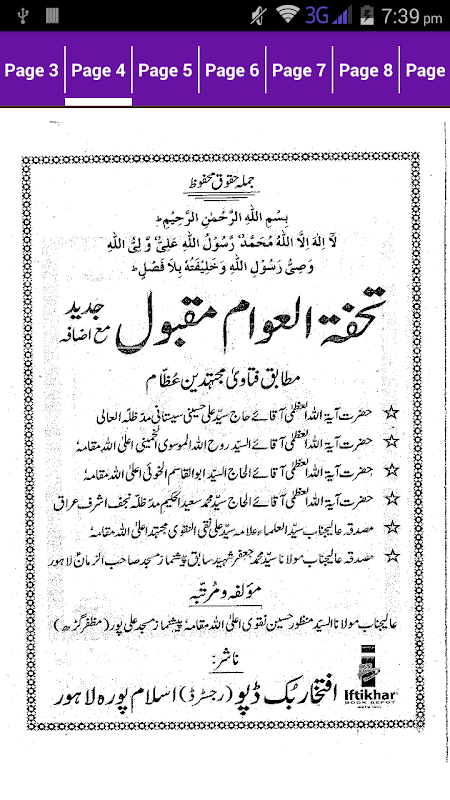 3G 7:39 pm
Page 3 Page 4 Page 5 Page 6 Page 7 Page 8 Page
جملہ حقوق محفوظ
بِسْمِ اللهِ الرَّحْمٰنِ الرَّحِيْمِ ط
لَآ اِلٰهَ اِلَّا اللهُ مُحَمَّدٌ رَّسُوْلُ اللهِ عَلِیٌّ وَّلِیُّ اللهِ
وَصِیُّ رَسُوْلِ اللهِ وَخَلِيْفَتُهٗ بِلَا فَصْلٍ ط
تحفۃ العوام مقبول جدید
مع اضافہ
مطابق فتاویٰ مجتہدین عظام
☆ حضرت آیۃ اللہ العظمیٰ آقائے حاج سیّد علی حسینی سیستانی مدظلہ العالی
☆ حضرت آیۃ اللہ العظمیٰ آقائے السیّد روح اللہ الموسوی الخمینی اعلیٰ اللہ مقامہٗ
☆ حضرت آیۃ اللہ العظمیٰ آقائے الحاج السیّد ابوالقاسم الخوئی اعلیٰ اللہ مقامہٗ
☆ حضرت آیۃ اللہ العظمیٰ آقائے الحاج سیّد محمد سعید الحکیم مدظلہ نجف اشرف عراق
☆ مصدقہ عالیجناب سیّد العلماء علامہ سیّد علی نقی النقوی مجتہد اعلیٰ اللہ مقامہٗ
☆ مصدقہ عالیجناب مولانا سیّد محمد جعفر شہید سابق پیشنماز مسجد صاحب الزمانؑ لاہور
مؤلفہ و مُرتّبہ
عالیجناب مولانا السیّد منظور حسین نقوی اعلیٰ اللہ مقامہٗ پیشنماز مسجد علی پور (مظفر گڑھ)
ناشر:
افتخار بک ڈپو (رجسٹرڈ) اسلام پورہ لاہور
Iftikhar
BOOK DEPOT